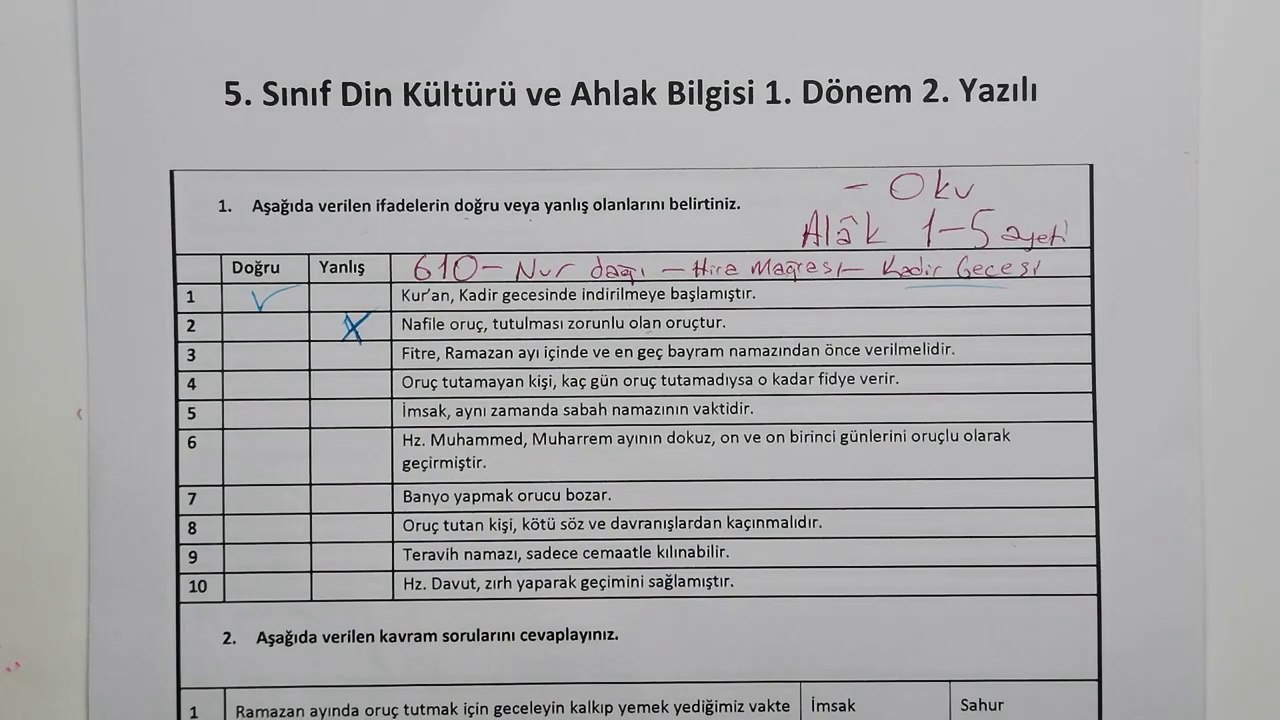 5. Sınıf Din Kültürü ve Ahlak Bilgisi 1. Dönem 2. Yazılı
- Oku
1. Aşağıda verilen ifadelerin doğru veya yanlış olanlarını belirtiniz.
Alâk 1-5 ayeti
Doğru Yanlış 610- Nur dağı - Hira Mağrası- Kadir Gecesi
1 Kur'an, Kadir gecesinde indirilmeye başlamıştır.
2 Nafile oruç, tutulması zorunlu olan oruçtur.
3 Fitre, Ramazan ayı içinde ve en geç bayram namazından önce verilmelidir.
4 Oruç tutamayan kişi, kaç gün oruç tutamadıysa o kadar fidye verir.
5 İmsak, aynı zamanda sabah namazının vaktidir.
6 Hz. Muhammed, Muharrem ayının dokuz, on ve on birinci günlerini oruçlu olarak
geçirmiştir.
7 Banyo yapmak orucu bozar.
8 Oruç tutan kişi, kötü söz ve davranışlardan kaçınmalıdır.
9 Teravih namazı, sadece cemaatle kılınabilir.
10 Hz. Davut, zırh yaparak geçimini sağlamıştır.
2. Aşağıda verilen kavram sorularını cevaplayınız.
1 Ramazan ayında oruç tutmak için geceleyin kalkıp yemek yediğimiz vakte İmsak Sahur